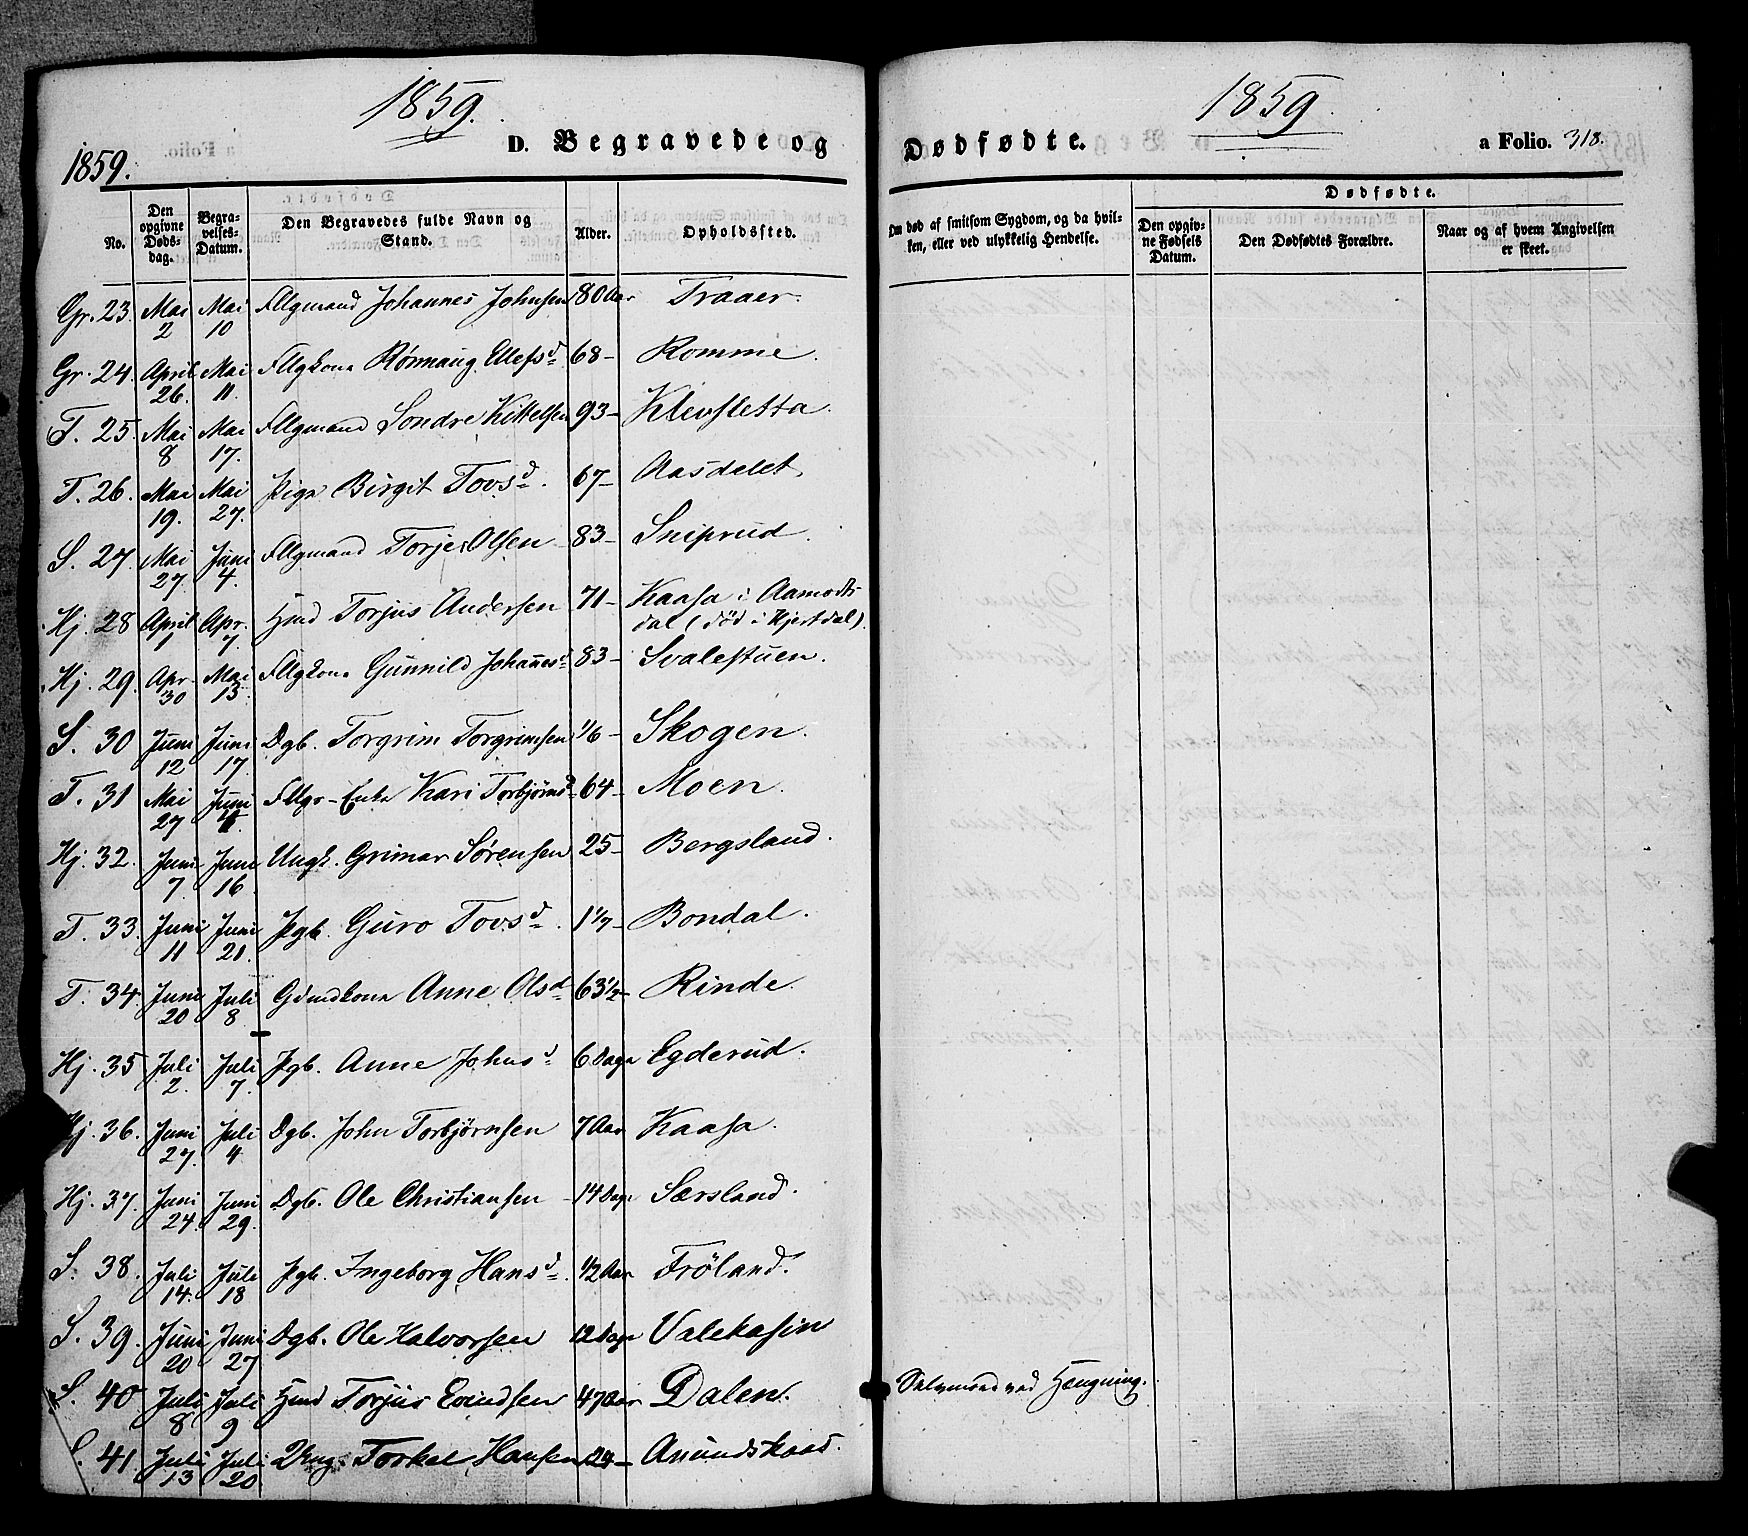 1859.
1859.
D. Begravede og
No.
Den opgivne Døds-dag.
Begra-velses-Datum.
Den Begravedes fulde Navn og Stand.
Alder.
Opholdssted.
Gr. 23. Mai 2 Mai 10 Fllgmand Johannes Johnsen 80 Aar Traaer.
Gr. 24. April 26. Mai 11. Fllgkona Rønnaug Ellefsd 68- Romme.
T. 25. Mai 8 Mai 17. Fllgmand Sondre Kittelsen 93- Klevsletta.
T. 26. Mai 19. Mai 27. Pige Birgit Tovsd. 67- Aasdelet
S. 27. Mai 27 Juni 4. Fllgmand Torje Olsen 83- Sniprud.
Hj. 28 April 1 Apr. 7. Hmd Torjus Andersen 71- Kaasa i Aamodts-
dal (død i Hjertdal).
Hj. 29. Apr. 30 Mai 13. Fllgkona Gunnild Johannesd 83- Svalestuen.
S. 30 Juni 12 Juni 17. Dgb. Torgrim Torgrimsen 1/6- Skogen.
T. 31 Mai 27 Juni 4. Fllgs-Enke Kari Torbjørnsd 64- Moen.
Hj. 32. Juni 7. Juni 16. Ungk. Grimar Sørensen 25- Bergsland.
T. 33. Juni 11 Juni 21. Pgb. Guro Tovsd. 1 1/7- Bondal.
T. 34. Juni 20 Juli 8 Gdmdkona Anne Olsd 63 1/2- Rinde.
Hj. 35 Juli 2. Juli 7. Pgb. Anne Johnsd 6 Dage Egderud.
Hj. 36. Juni 27. Juli 4 Dgb. John Torbjørnsen 7 Aar Kaasa.
Hj. 37. Juni 24. Juni 29. Dgb. Ole Christiansen 14 Dage Særsland.
S. 38. Juli 14. Juli 18 Pgb. Ingeborg Hansd. 1/2 Aar Frøland.
S. 39. Juni 20 Juni 27 Dgb. Ole Halvorsen 12 Dage Valekasin
S. 40 Juli 8 Juli 9 Hmd Torjus Evindsen 47 Aar Dalen.
S. 41 Juli 13 Juli 20. Torkel Hansen 24- Anundskaas.
1859.
Dødfødte.
a Folio. 318.
Om død af smitsom Sygdom, og da hvil-ken, eller ved ulykkelig Hendelse.
Dødfødte.
Den opgiv-ne Fødsels Datum.
Den Dødfødtes Forældre.
Naar og af hvem Angivelsen er skeet.
Selvmord ved Hængning.